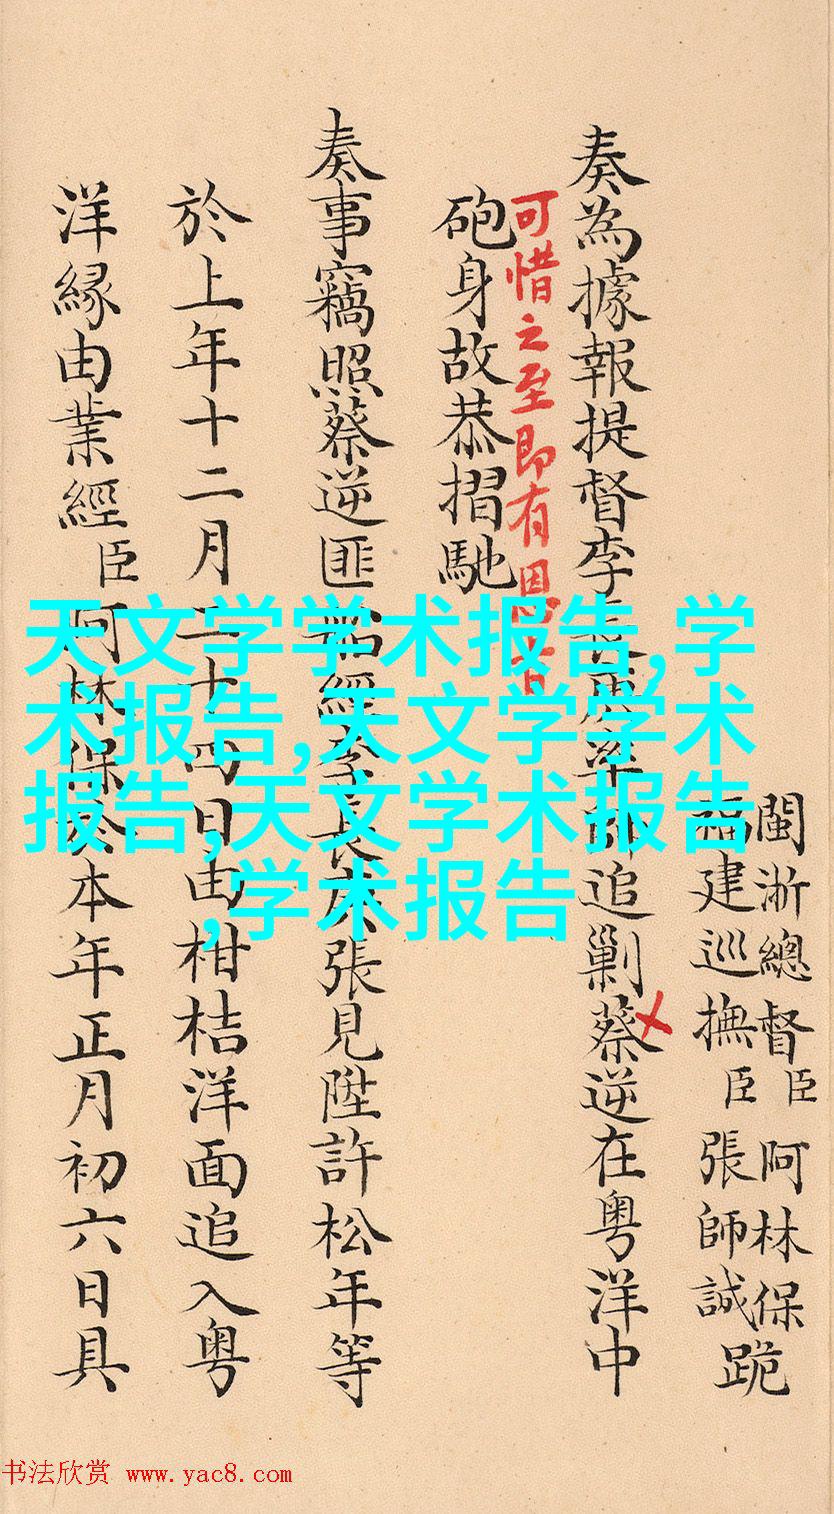 閩浙總督臣阿林保
福建巡撫臣張師誠跪
奏為據報提督李長庚率師追剿蔡逆在粵洋中
可惜之至即有恩旨
砲身故恭摺馳
奏事竊照蔡逆匪船經李長庚張見陞許松年等
於上年十二月二十四日由柑桔洋面追入粵
洋緣由業經臣阿林保於本年正月初六日具
天文学学术报告,学
术报告,天文学学术
报告,天文学术报告
,学术报告
书法欣赏 www.yac8.com